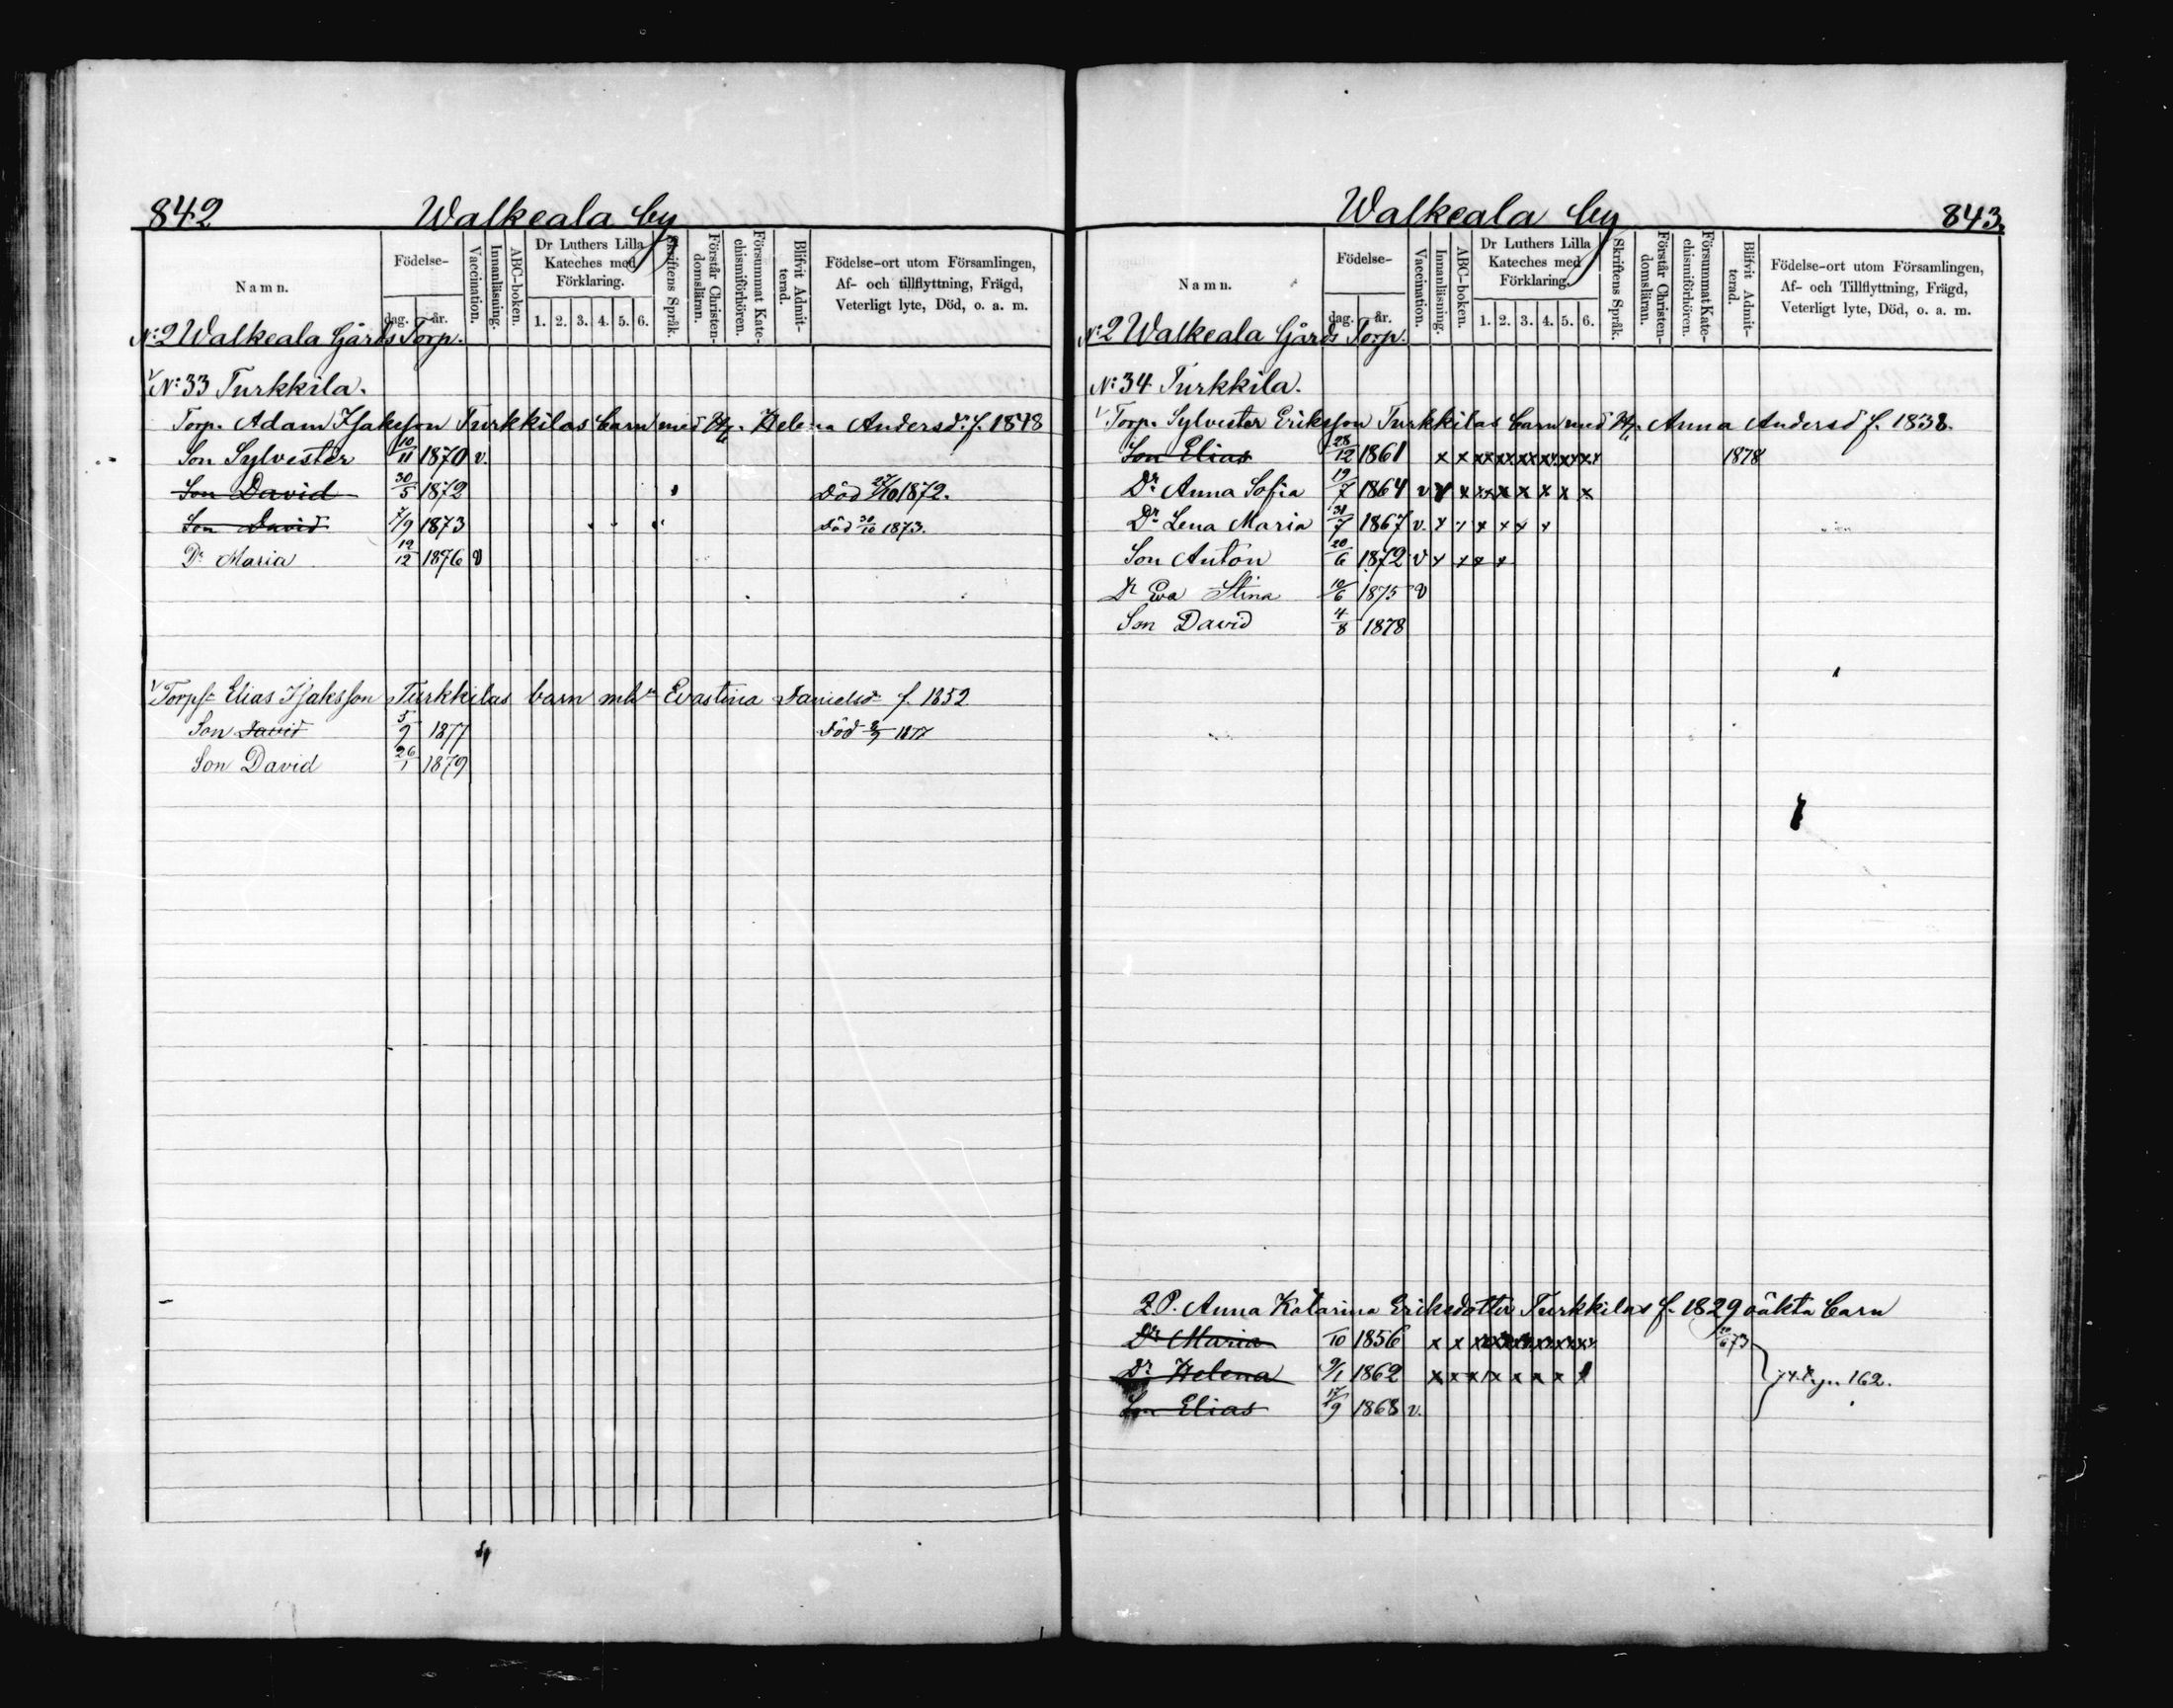 842 Walkeala by
Namn. Födelse- dag. år. Vaccination. Innanläsning. ABC-boken. Dr Luthers Lilla Kateches med Förklaring. 1. 2. 3. 4. 5. 6. Skriftens Språk. Förstår Christen-domsläran. Försummat Kate-chismiförhören. Blifvit Admit-terad. Födelse-ort utom Församlingen, Af- och tillflyttning, Frägd, Veterligt lyte, Död, o. a. m.
N:2 Walkeala Gårds Torp.
N:33 Turkkila.
Torp. Adam Isaksson Turkkilas barn med H. Helena Andersdr f. 1848
Son Sylvester 10/11 1870 v.
Son David 30/5 1872 Död 27/10 1872.
Son David 7/9 1873 Död 30/10 1873.
Dr Maria 19/12 1876 v
Torpr Elias Isaksson Turkkilas barn mhu Evastina Danielsdr f. 1852
Son David 5/9 1877 Död 8/9 1877
Son David 26/1 1879
Walkeala by 843.
Namn. Födelse- dag. år. Vaccination. Innanläsning. ABC-boken. Dr Luthers Lilla Kateches med Förklaring. 1. 2. 3. 4. 5. 6. Skriftens Språk. Förstår Christen-domsläran. Försummat Kate-chismiförhören. Blifvit Admit-terad. Födelse-ort utom Församlingen, Af- och Tillflyttning, Frägd, Veterligt lyte, Död, o. a. m.
N:2 Walkeala Gårds Torp.
N:34 Turkkila.
Torp. Sylvester Eriksson Turkkilas barn med H. Anna Andersd f. 1838.
Son Elias 28/12 1861 x x xx xx xx xx xx xx 1878
Dr Anna Sofia 19/7 1864 v v x xx x x x x x
Dr Lena Maria 31/7 1867 v. x x x x x x
Son Anton 20/6 1872 v x x x x
Dr Eva Stina 10/6 1875 v
Son David 4/8 1878
Anna Katarina Eriksdotter Turkkilas f. 1829 oäkta barn
Dr Maria /10 1856 x x xx xx xx xx xx xx 73
Dr Helena 9/1 1862 x x x x x x x
Son Elias 17/9 1868 v.
162.